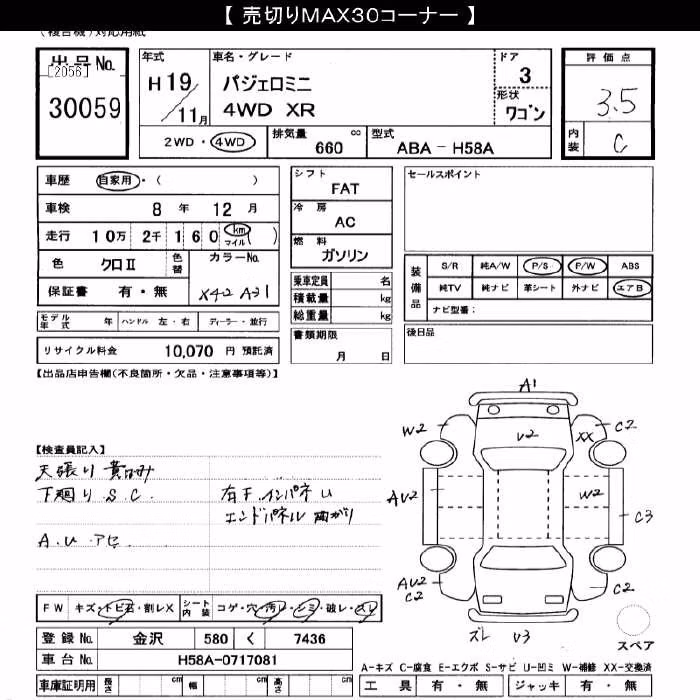 【 売切りMAX30コーナー 】
(複合機)対応用紙
出品No.
[2056]
30059
年式
H19/11月
車名・グレード
パジェロミニ
4WD XR
ドア
3
形状
ワゴン
評価点
3.5
内装
C
2WD・4WD
排気量
660
cc
型式
ABA - H58A
車歴 自家用・( )
車検 8 年 12 月
走行 10万 2千 160 km マイル( )
色 クロⅡ 色替 カラーNo.
保証書 有・無 X42 A31
モデル年式 年 ハンドル 左・右 ディーラー・並行
リサイクル料金 10,070 円 預託済
シフト
FAT
冷房
AC
燃料
ガソリン
乗車定員 名
積載量 kg
総重量 kg
書類期限
月 日
セールスポイント
装備品
S/R 純A/W P/S P/W ABS
純TV 純ナビ 革シート 外ナビ エアB
ナビ型番:
後日品
【出品店申告欄(不良箇所・欠品・注意事項等)】
【検査員記入】
天張り 黄ばみ
下廻り S.C. 右下インパネ U
エンドパネル 曲がり
A.U.アセ
FW キズ・トビ石・割レX シート内装 コゲ・穴・汚レ・シミ・破レ・スレ
登録No. 金沢 580 く 7436
車台No. H58A-0717081
車庫証明用 長さ cm 幅 cm 高さ cm
A1
W2
U2
XX
C2
AU2
W2
C3
AU2
C2
C2
ズレ U3
スペア
A-キズ C-腐食 E-エクボ S-サビ U-凹ミ W-補修 XX-交換済
工具 有・無 ジャッキ 有・無